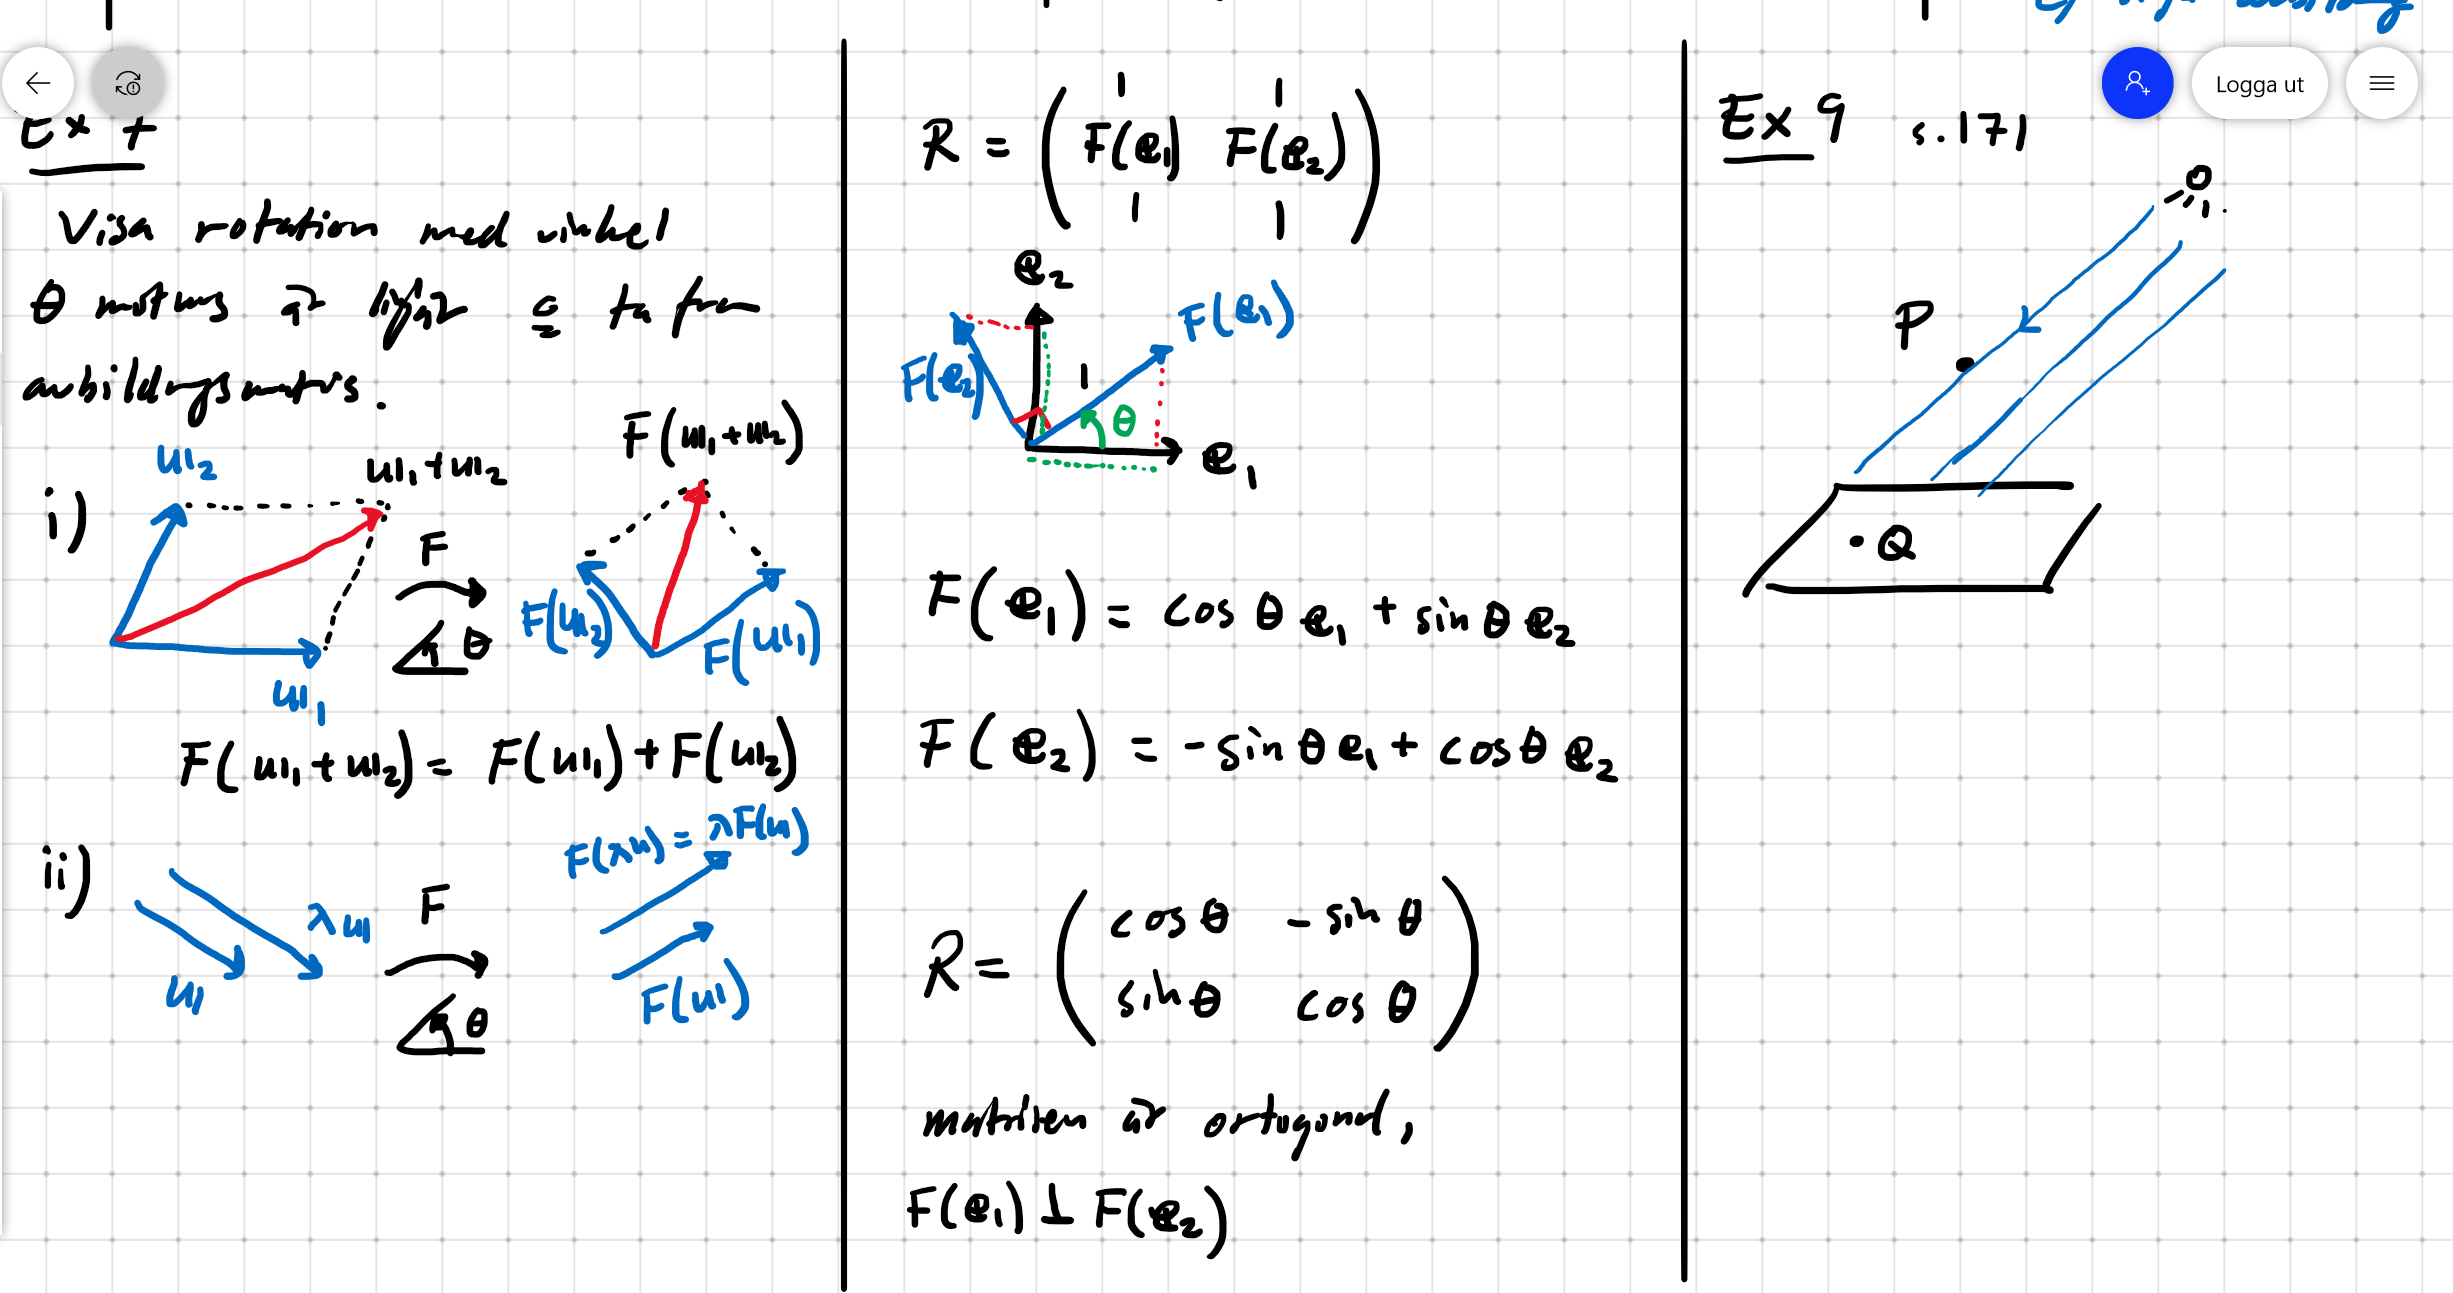 Ex 7
Visa rotation med vinkel
θ moturs är linjär & ta fram
avbildningsmatris.
i)
u₂
u₁+u₂
F
θ
u₁
F(u₁+u₂)
F(u₂)
F(u₁)
F(u₁+u₂) = F(u₁)+F(u₂)
ii)
u
λu
F
θ
F(λu) = λF(u)
F(u)
R = ( F(e₁) F(e₂) )
e₂
F(e₁)
F(e₂)
1
θ
e₁
F(e₁) = cos θ e₁ + sin θ e₂
F(e₂) = -sin θ e₁ + cos θ e₂
R =
cos θ -sin θ
sin θ cos θ
matrisen är ortogonal,
F(e₁) ⊥ F(e₂)
Logga ut
Ex 9 s.171
P
Q